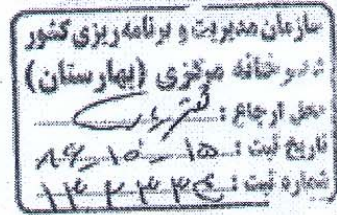 سازمان مدیریت و برنامه ریزی کشور
دبیرخانه مرکزی (بهارستان)
محل ارجاع :
تاریخ ثبت : ۱۵-۱۰-۸۴
شماره ثبت :